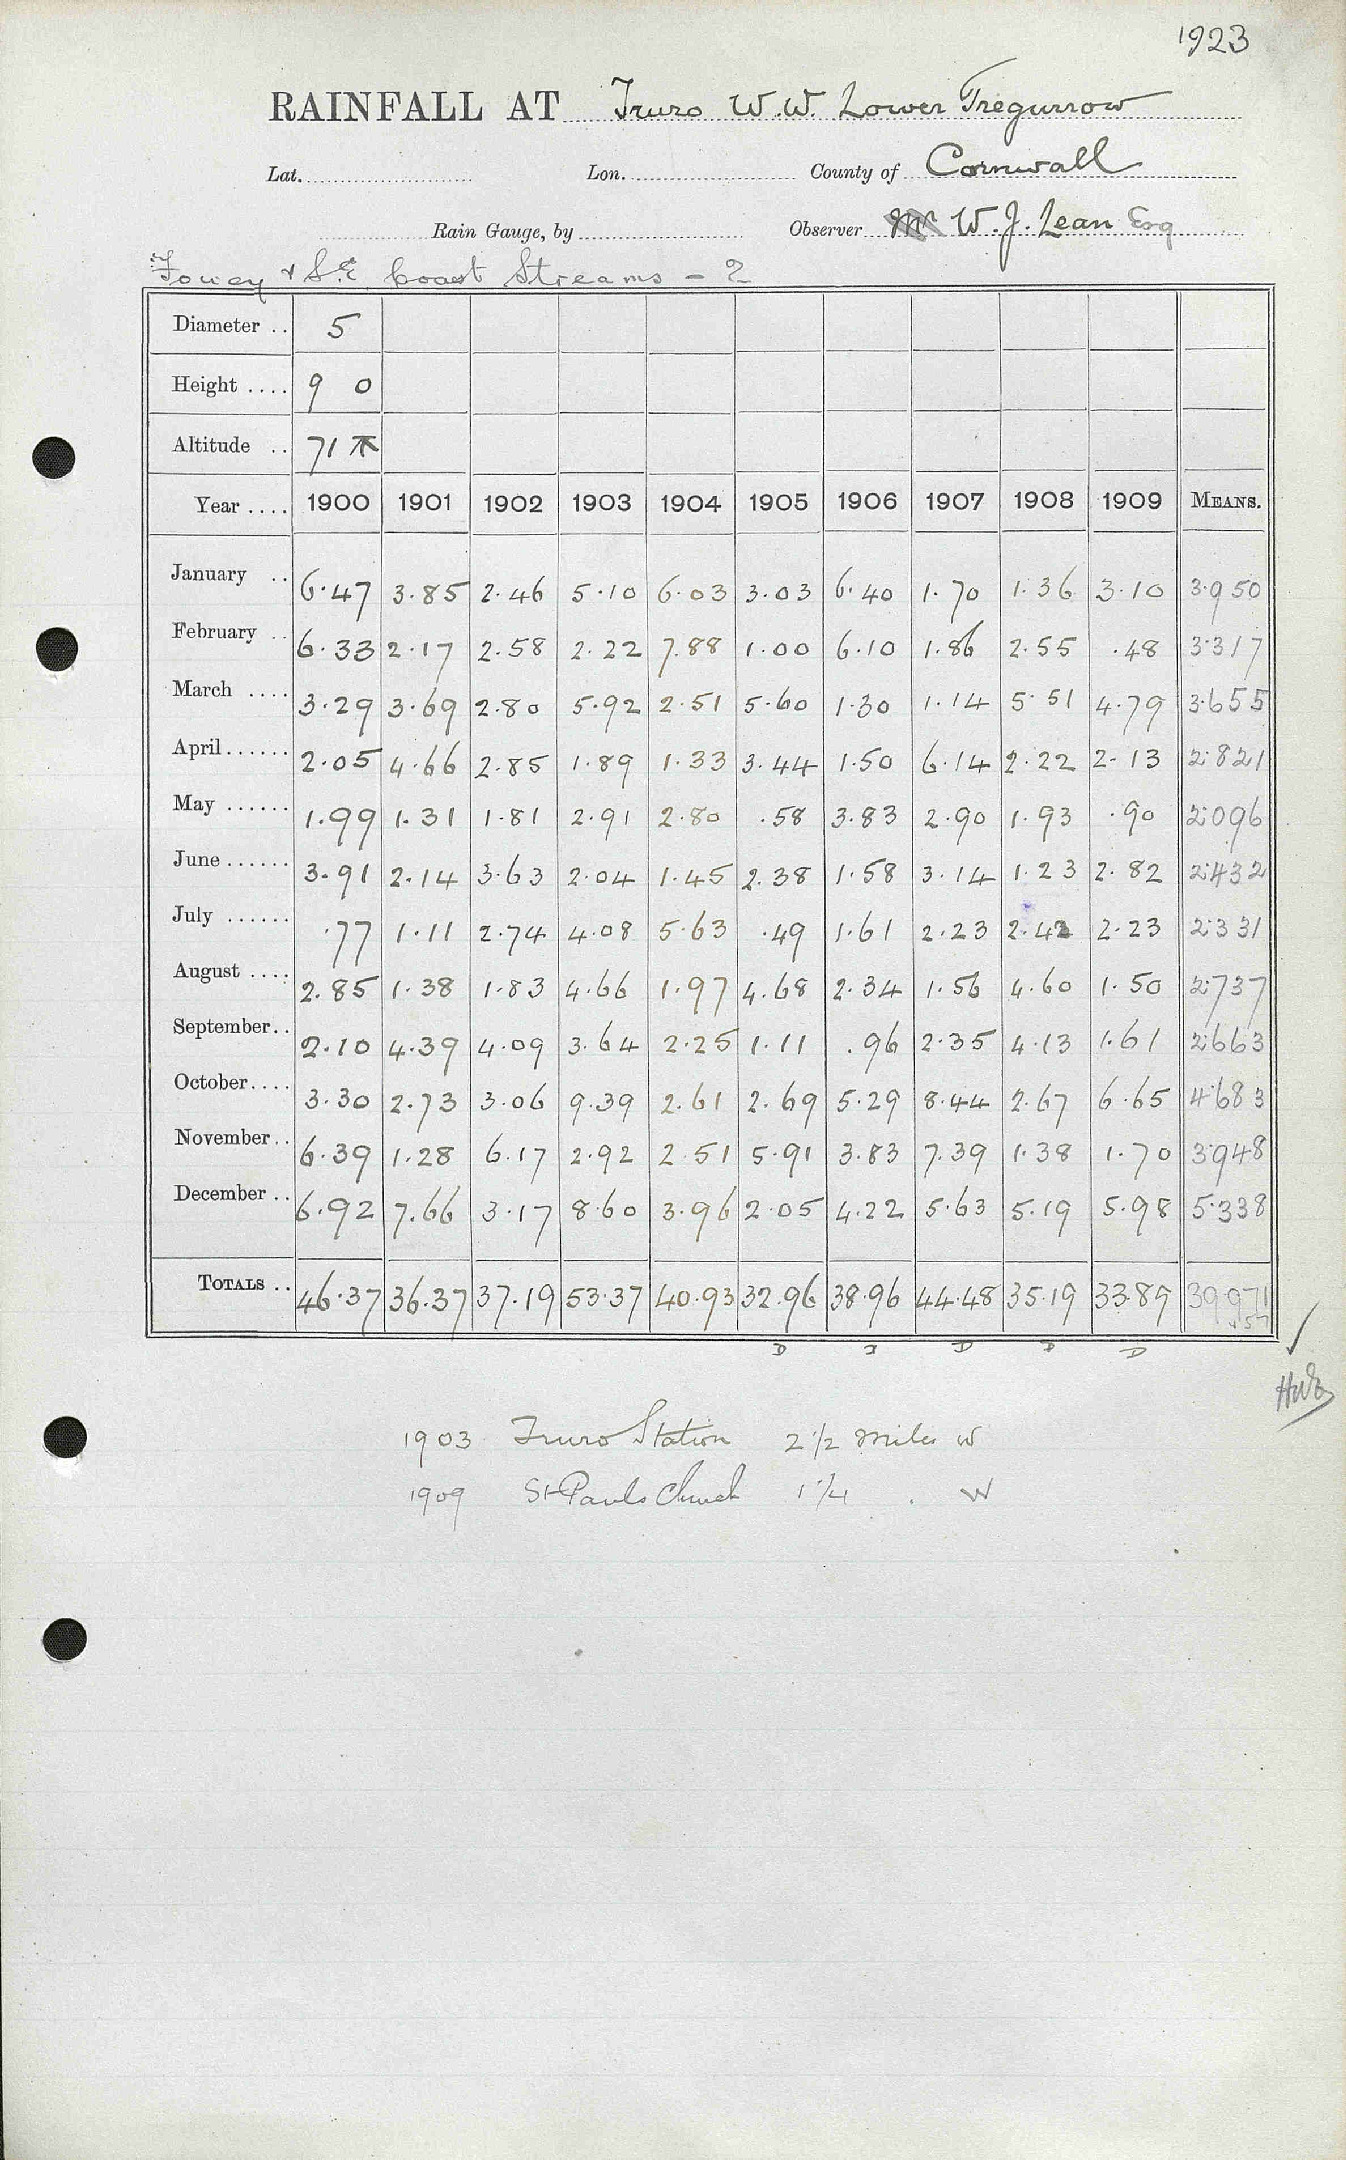 1923
RAINFALL AT Truro W.W. Lower Tregurrow
Lat. Lon. County of Cornwall
Rain Gauge, by Observer Mr W. J. Lean Esq
Fowey & S.E. Coast Streams - 2
Diameter .. 5
Height .... 9 0
Altitude .. 71
Year .... 1900 1901 1902 1903 1904 1905 1906 1907 1908 1909 MEANS.
January .. 6.47 3.85 2.46 5.10 6.03 3.03 6.40 1.70 1.36 3.10 3.950
February .. 6.33 2.17 2.58 2.22 7.88 1.00 6.10 1.86 2.55 .48 3.317
March .... 3.29 3.69 2.80 5.92 2.51 5.60 1.30 1.14 5.51 4.79 3.655
April ...... 2.05 4.66 2.85 1.89 1.33 3.44 1.50 6.14 2.22 2.13 2.821
May ...... 1.99 1.31 1.81 2.91 2.80 .58 3.83 2.90 1.93 .90 2.096
June ...... 3.91 2.14 3.63 2.04 1.45 2.38 1.58 3.14 1.23 2.82 2.432
July ...... .77 1.11 2.74 4.08 5.63 .49 1.61 2.23 2.42 2.23 2.331
August .... 2.85 1.38 1.83 4.66 1.97 4.68 2.34 1.56 4.60 1.50 2.737
September .. 2.10 4.39 4.09 3.64 2.25 1.11 .96 2.35 4.13 1.61 2.663
October .... 3.30 2.73 3.06 9.39 2.61 2.69 5.29 8.44 2.67 6.65 4.683
November .. 6.39 1.28 6.17 2.92 2.51 5.91 3.83 7.39 1.38 1.70 3.948
December .. 6.92 7.66 3.17 8.60 3.96 2.05 4.22 5.63 5.19 5.98 5.338
TOTALS .. 46.37 36.37 37.19 53.37 40.93 32.96 38.96 44.48 35.19 33.89 39.971
D I D D D
1903 Truro Station 2 1/2 miles W
1909 St Pauls Church 1 1/4 . W